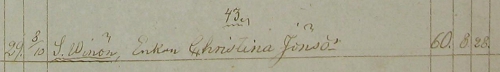 43.
29. 3/10 S. Winön, Enkan Christina Jönsd. 60. 8. 28.